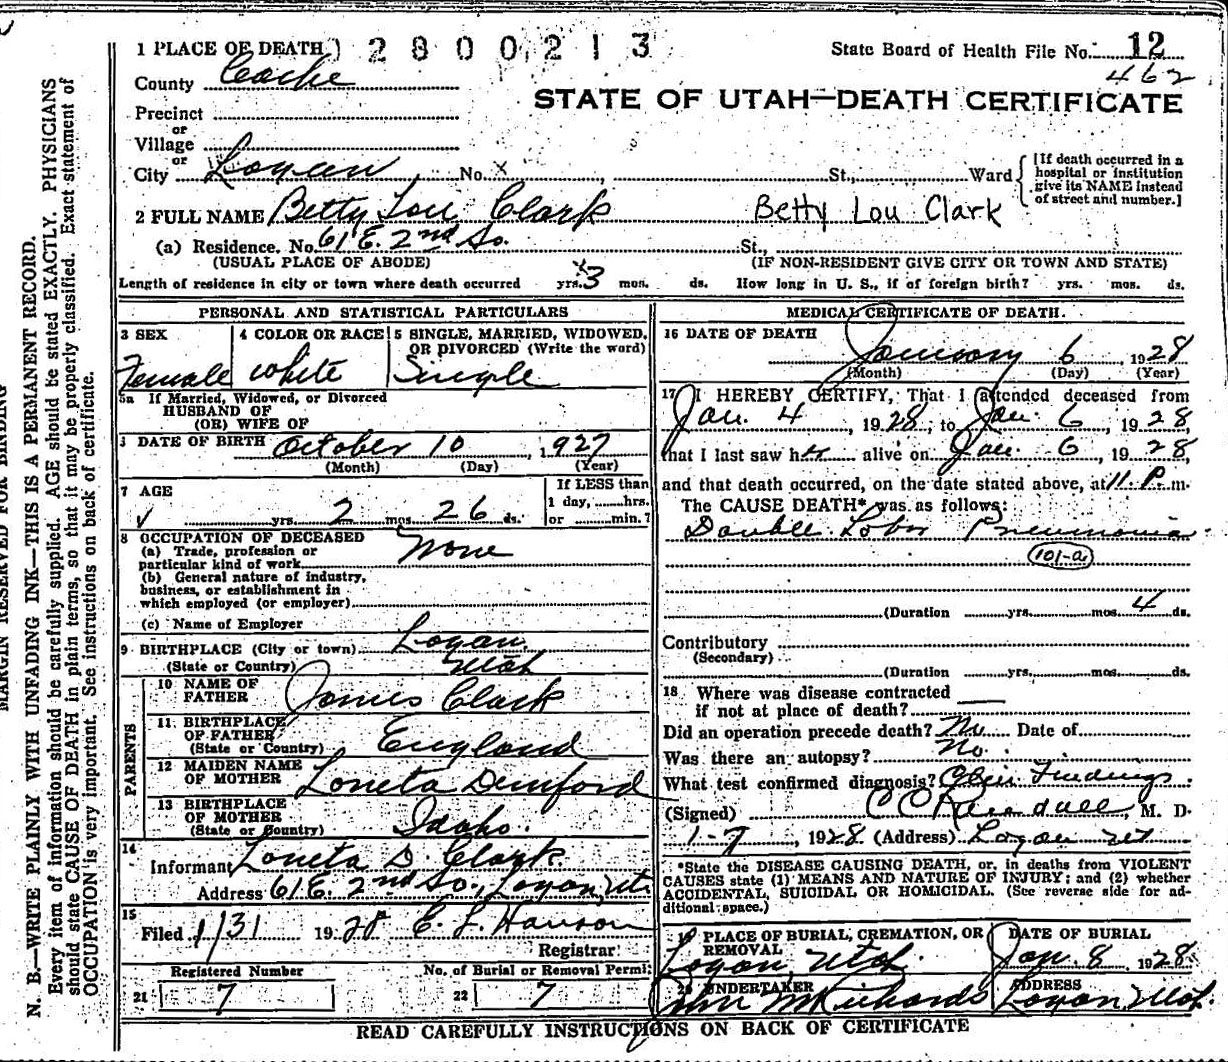 1 PLACE OF DEATH 2 8 0 0 2 1 3
State Board of Health File No. 12
462
County Cache
STATE OF UTAH—DEATH CERTIFICATE
Precinct
or
Village
or
City Logan No. x St., Ward
[If death occurred in a
hospital or institution
give its NAME instead
of street and number.]
2 FULL NAME Betty Lou Clark Betty Lou Clark
(a) Residence. No. 61 E. 2nd So. St.,
(USUAL PLACE OF ABODE) (IF NON-RESIDENT GIVE CITY OR TOWN AND STATE)
Length of residence in city or town where death occurred yrs. 3 mos. ds. How long in U. S., if of foreign birth? yrs. mos. ds.
PERSONAL AND STATISTICAL PARTICULARS
3 SEX
Female
4 COLOR OR RACE
white
5 SINGLE, MARRIED, WIDOWED,
OR DIVORCED (Write the word)
Single
5a If Married, Widowed, or Divorced
HUSBAND OF
(OR) WIFE OF
DATE OF BIRTH October 10, 1927
(Month) (Day) (Year)
7 AGE
yrs. 2 mos. 26 ds.
If LESS than
1 day, hrs.
or min.?
8 OCCUPATION OF DECEASED
(a) Trade, profession or
particular kind of work None
(b) General nature of industry,
business, or establishment in
which employed (or employer)
(c) Name of Employer
9 BIRTHPLACE (City or town) Logan,
(State or Country) Utah
PARENTS
10 NAME OF
FATHER James Clark
11 BIRTHPLACE
OF FATHER
(State or Country) England
12 MAIDEN NAME
OF MOTHER Loneta Demford
13 BIRTHPLACE
OF MOTHER
(State or Country) Idaho.
14
Informant Loneta D. Clark.
Address 61 E. 2nd So., Logan, Ut.
15
Filed 1/31 1928 E. L. Hanson
Registrar
Registered Number
21 7
No. of Burial or Removal Permit
22 7
MEDICAL CERTIFICATE OF DEATH.
16 DATE OF DEATH
January 6 1928
(Month) (Day) (Year)
17 I HEREBY CERTIFY, That I attended deceased from
Jan. 4, 1928, to Jan. 6, 1928,
that I last saw her alive on Jan. 6, 1928,
and that death occurred, on the date stated above, at 11 P. m.
The CAUSE DEATH* was as follows:
Double Lobar Pneumonia
101-a
(Duration yrs. mos. 4 ds.
Contributory
(Secondary)
(Duration yrs. mos. ds.
18 Where was disease contracted
if not at place of death?
Did an operation precede death? No Date of
Was there an autopsy? No.
What test confirmed diagnosis? Clin. Findings
(Signed) C C Randall, M. D.
1-7, 1928 (Address) Logan Ut
*State the DISEASE CAUSING DEATH, or, in deaths from VIOLENT
CAUSES state (1) MEANS AND NATURE OF INJURY; and (2) whether
ACCIDENTAL, SUICIDAL OR HOMICIDAL. (See reverse side for ad-
ditional space.)
19 PLACE OF BURIAL, CREMATION, OR
REMOVAL
Logan, Utah.
DATE OF BURIAL
Jan. 8 1928
20 UNDERTAKER
John M Richards
ADDRESS
Logan, Utah.
READ CAREFULLY INSTRUCTIONS ON BACK OF CERTIFICATE
MARGIN RESERVED FOR BINDING
N. B.—WRITE PLAINLY WITH UNFADING INK—THIS IS A PERMANENT RECORD.
Every item of information should be carefully supplied. AGE should be stated EXACTLY. PHYSICIANS
should state CAUSE OF DEATH in plain terms, so that it may be properly classified. Exact statement of
OCCUPATION is very important. See instructions on back of certificate.